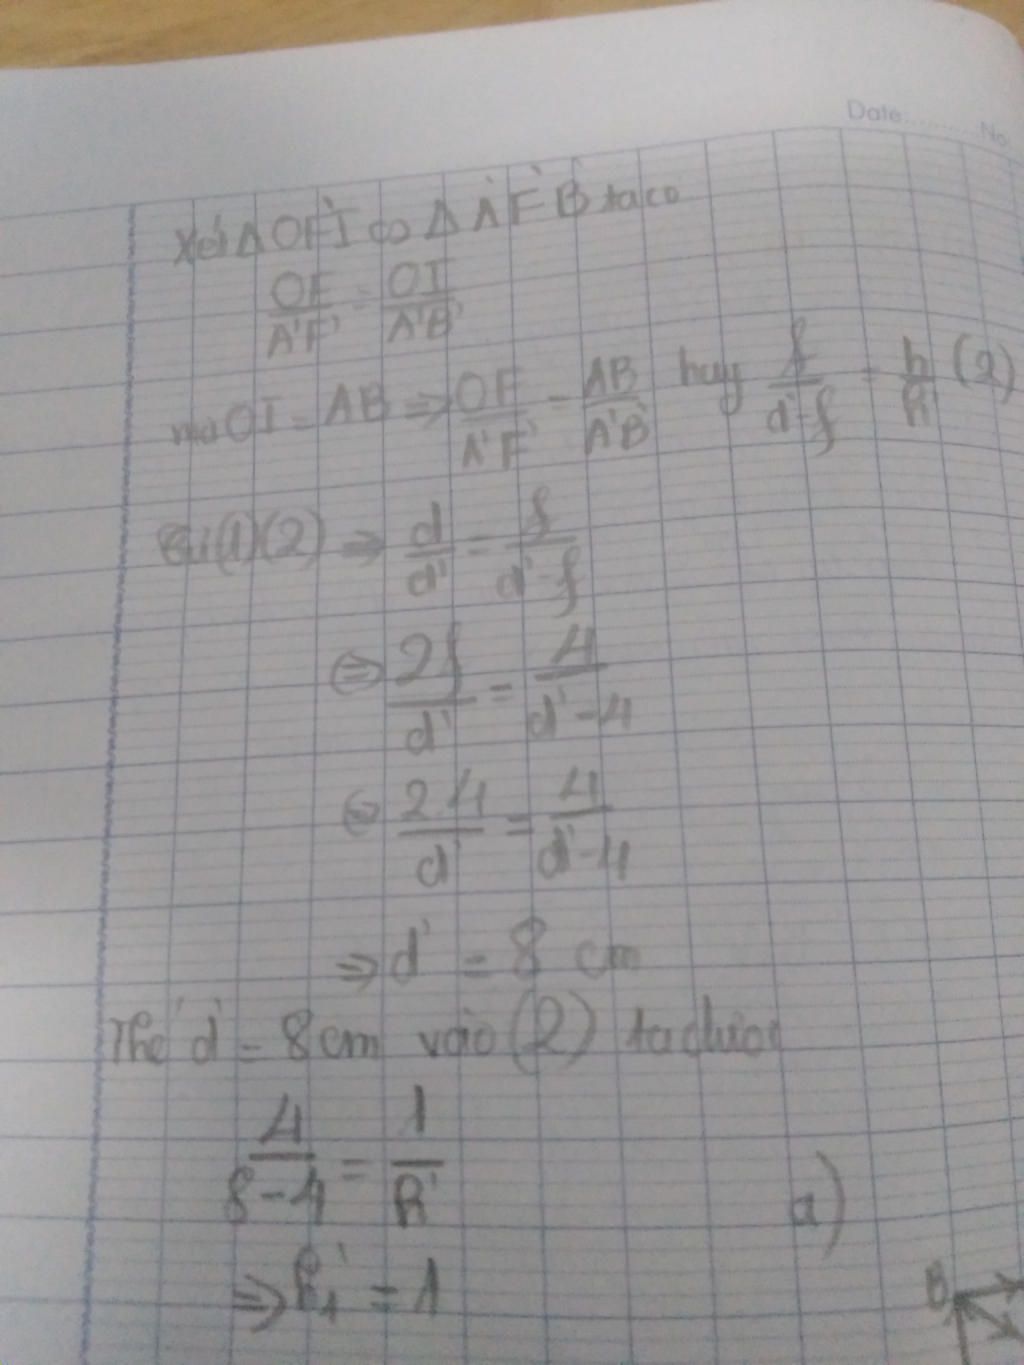 Date.......... No.
Xét Δ OF'I ∽ Δ A'F'B' ta có
OF'/A'F' = OI/A'B'
mà OI = AB ⇒ OF'/A'F' = AB/A'B' hay f/d'-f = h/h' (2)
(1)(2) ⇒ d/d' = f/d'-f
⇔ 2f/d' = 4/d'-4
⇔ 2.4/d' = 4/d'-4
⇒ d' = 8 cm
Thế d' = 8cm vào (2) ta được
4/8-4 = 1/h'
⇒ h' = 1
a)
B